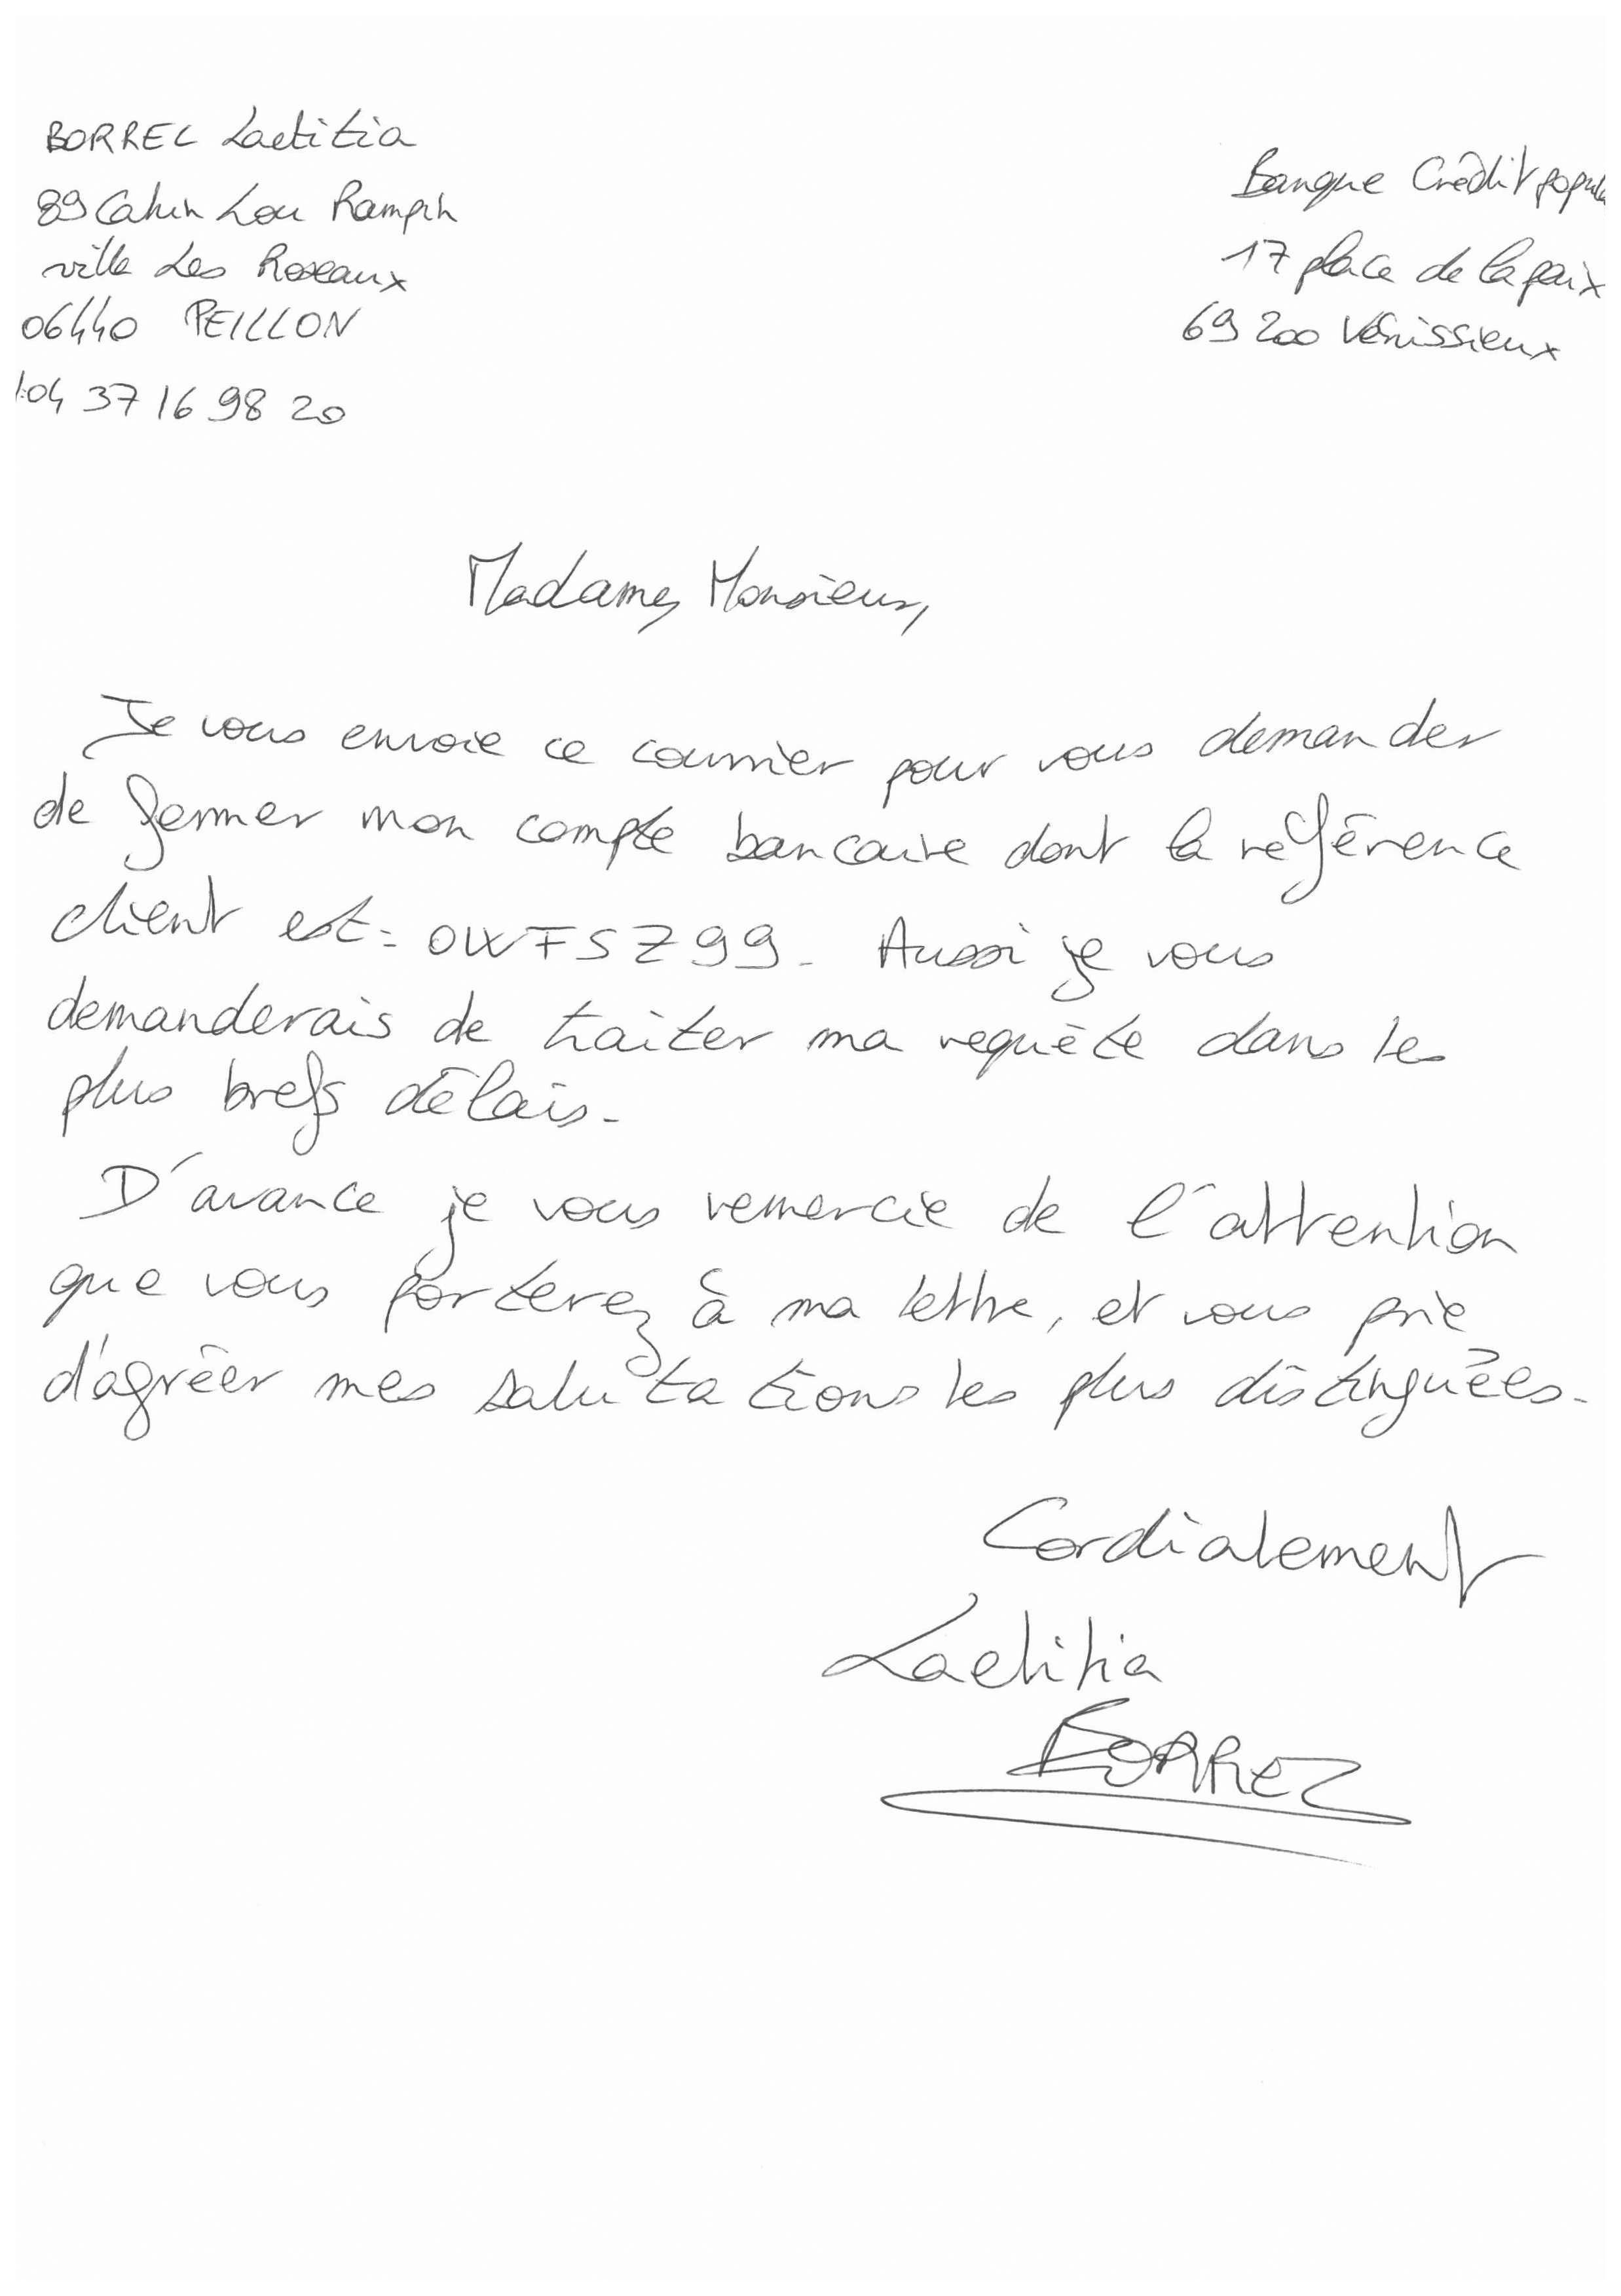 BORREL Laetitia
89 Camin Lou Rampin
ville Les Roseaux
06440 PEILLON
04 37 16 98 20
Banque Crédit popula
17 place de la paix
69200 Vénissieux
Madame, Monsieur,
Je vous envoie ce courrier pour vous demander
de fermer mon compte bancaire dont la référence
client est: OWFSZ99. Aussi je vous
demanderais de traiter ma requête dans les
plus brefs délais.
D'avance je vous remercie de l'attention
que vous porterez à ma lettre, et vous prie
d'agréer mes salutations les plus distinguées.
Cordialement
Laetitia
BORREL